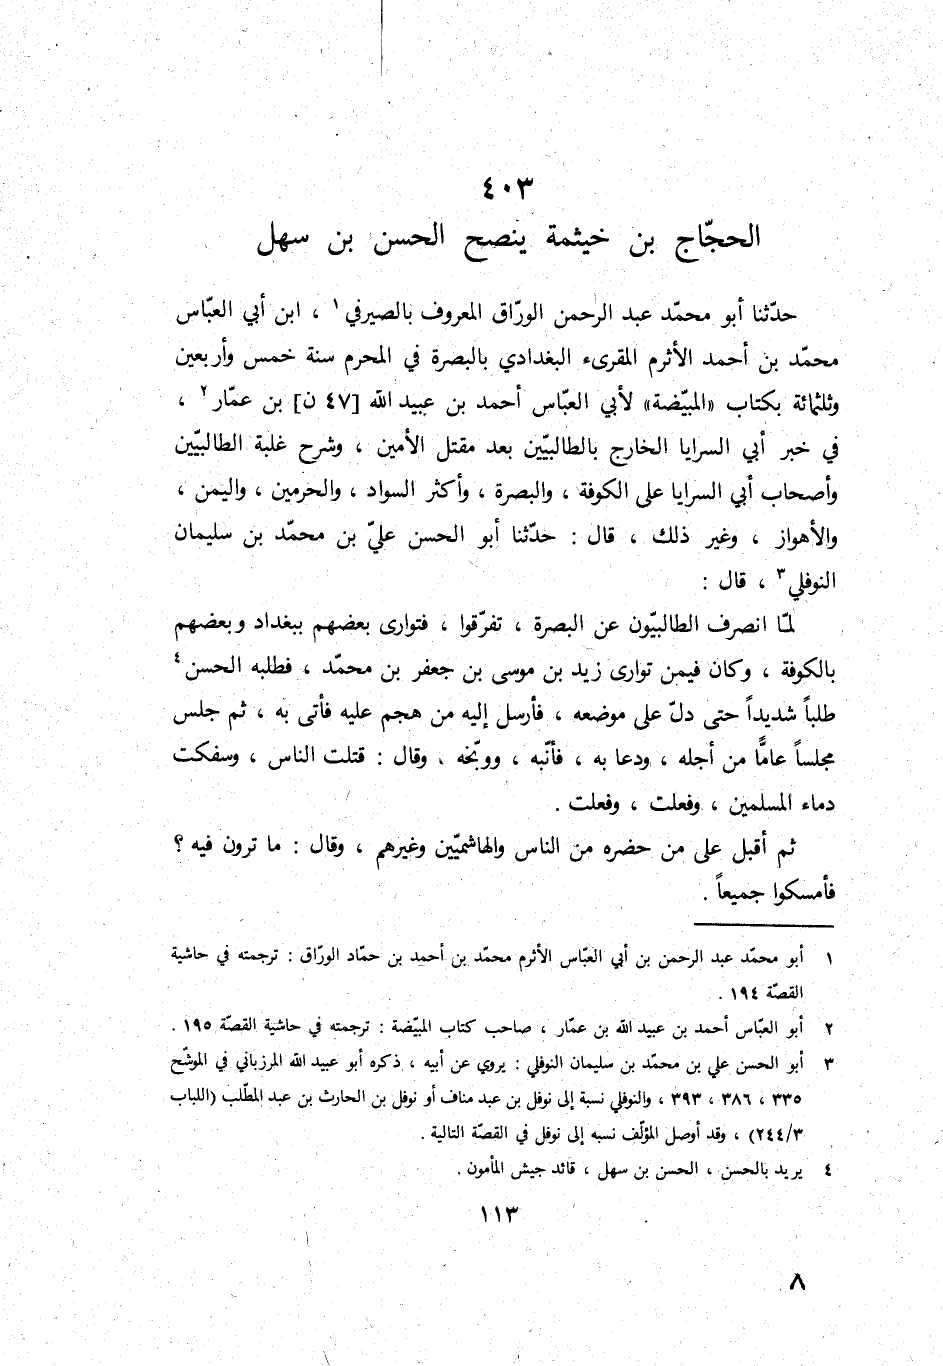 ٤٠٣
الحجّاج بن خيثمة ينصح الحسن بن سهل
حدّثنا أبو محمّد عبد الرحمن الورّاق المعروف بالصيرفي١ ، ابن أبي العبّاس
محمّد بن أحمد الأثرم المقرىء البغدادي بالبصرة في المحرم سنة خمس وأربعين
وثلثمائة بكتاب «المبيّضة» لأبي العبّاس أحمد بن عبيد الله [٤٧ ن] بن عمّار٢ ،
في خبر أبي السرايا الخارج بالطالبيّين بعد مقتل الأمين ، وشرح غلبة الطالبيّين
وأصحاب أبي السرايا على الكوفة ، والبصرة ، وأكثر السواد ، والحرمين ، واليمن ،
والأهواز ، وغير ذلك ، قال : حدّثنا أبو الحسن عليّ بن محمّد بن سليمان
النوفلي٣ ، قال :
لمّا انصرف الطالبيّون عن البصرة ، تفرّقوا ، فتوارى بعضهم ببغداد وبعضهم
بالكوفة ، وكان فيمن توارى زيد بن موسى بن جعفر بن محمّد ، فطلبه الحسن٤
طلباً شديداً حتى دلّ على موضعه ، فأرسل إليه من هجم عليه فأتى به ، ثم جلس
مجلساً عامًّا من أجله ، ودعا به ، فأنّبه ، ووبّخه ، وقال : قتلت الناس ، وسفكت
دماء المسلمين ، وفعلت ، وفعلت .
ثم أقبل على من حضره من الناس والهاشميّين وغيرهم ، وقال : ما ترون فيه ؟
فأمسكوا جميعاً .
١ أبو محمّد عبد الرحمن بن أبي العبّاس الأثرم محمّد بن أحمد بن حمّاد الورّاق : ترجمته في حاشية
القصّة ١٩٤ .
٢ أبو العبّاس أحمد بن عبيد الله بن عمّار ، صاحب كتاب المبيّضة : ترجمته في حاشية القصّة ١٩٥ .
٣ أبو الحسن علي بن محمّد بن سليمان النوفلي : يروي عن أبيه ، ذكره أبو عبيد الله المرزباني في الموشّح
٣٣٥ ، ٣٨٦ ، ٣٩٣ ، والنوفلي نسبة إلى نوفل بن عبد مناف أو نوفل بن الحارث بن عبد المطّلب (اللباب
٢٤٤/٣) ، وقد أوصل المؤلّف نسبه إلى نوفل في القصّة التالية .
٤ يريد بالحسن ، الحسن بن سهل ، قائد جيش المأمون .
١١٣
٨